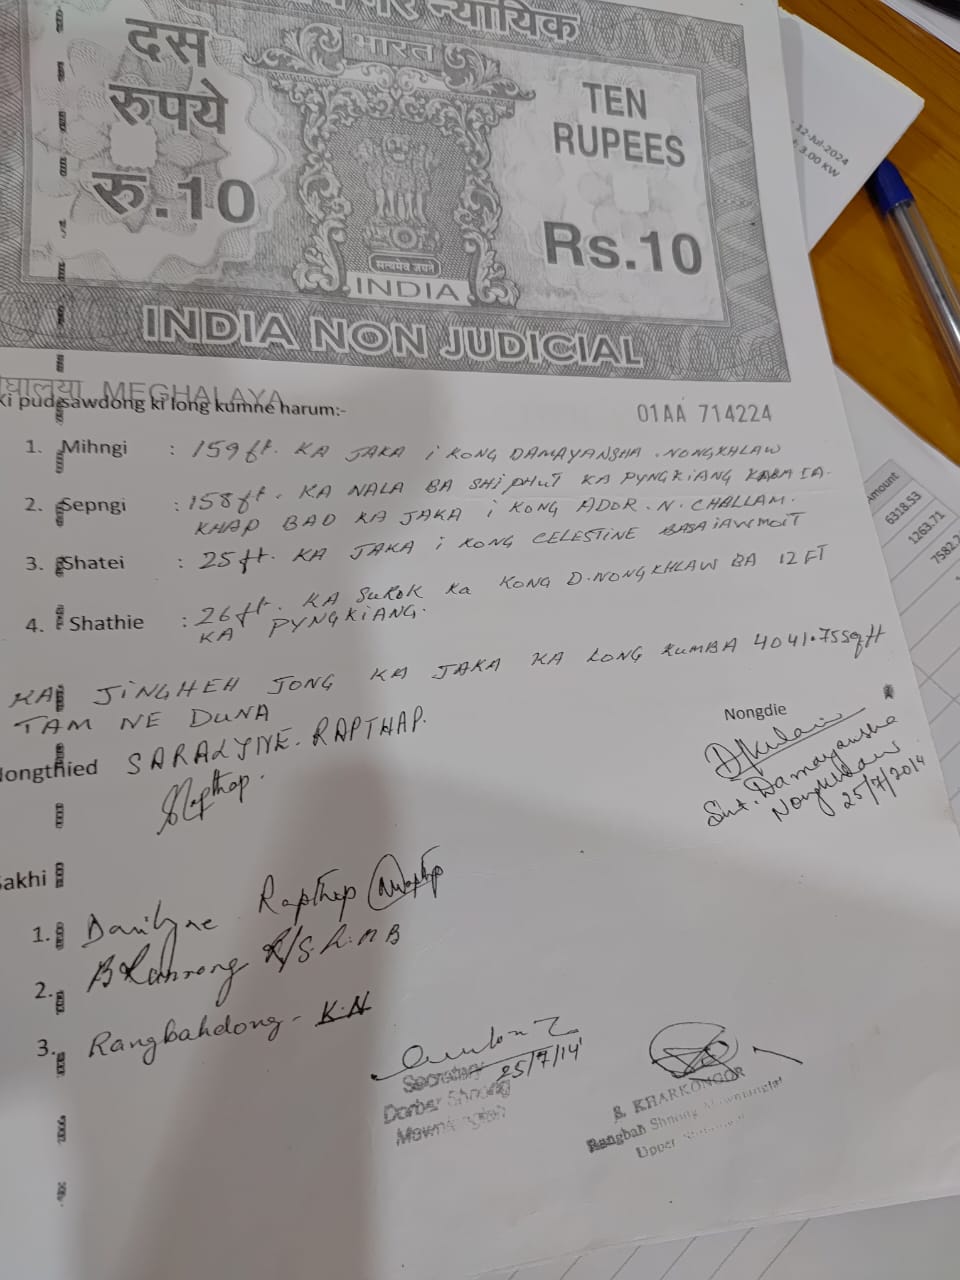 न्यायिक
भारत
दस
रुपये
रु.10
TEN
RUPEES
Rs.10
सत्यमेव जयते
INDIA
INDIA NON JUDICIAL
MEGHALAYA
01AA 714224
Ki pud sawdong ki long kumne harum:-
1. Mihngi : 159ft. KA JAKA i KONG DAMAYANSHA NONGKHLAW
2. Sepngi : 158ft. KA NALA BA SHIPHUT KA PYNGKIANG KABA IA-
KHAP BAD KA JAKA i KONG ADOR.N.CHALLAM.
3. Shatei : 25ft. KA JAKA i KONG CELESTINE BASAIAWMOIT
4. Shathie : 26ft. KA SUROK KA KONG D.NONGKHLAW BA 12 FT
KA PYNGKIANG.
KA JINGHEH JONG KA JAKA KA LONG KUMBA 4041.75sqft
TAM NE DUNA
Nongthied SARALYNE. RAPTHAP.
Rapthap.
Nongdie
Smt. Damayansha
Nongkhlaw
25/7/2014
Sakhi
1. Darilyne Rapthap
2.
3. Rangbahdong - K.N
25/7/14
Secretary
Dorbar Shnong
S. KHARKONGOR
Rangbah Shnong
Upper
12-Jul-2024
3.00 KW
Amount
6318.53
1263.71
7582.2